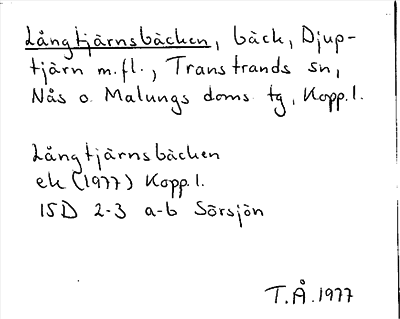 Långtjärnsbäcken, bäck, Djup-
tjärn m.fl., Transtrands sn,
Nås o. Malungs doms. tg, Kopp.l.
Långtjärnsbäcken
ek (1977) Kopp.l.
15D 2-3 a-b Sörsjön
T.Å.1977